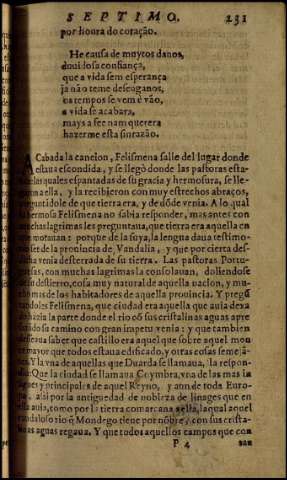 SEPTIMO. 231
por honra do coração.
He causa de muytos danos,
duuidosa confiança,
que a vida sem esperança
ja não teme desenganos,
os tempos se vem e vão,
a vida se acabara,
mays a fee nam querera
hazerme esta sinrazão.
ACabada la cancion, Felismena salle del lugar donde
estaua escondida, y se llegò donde las pastoras esta-
las quales espantadas de su gracia y hermosura, se lle-
a ella, y la recibieron con muy estrechos abraços,
guntãdole de que tierra era, y de dõde venia. A lo qual
hermosa Felismena no sabia responder, mas antes con
muchas lagrimas les preguntaua, que tierra era aquella en
que morauan: porque de la suya, la lengua daua testimo-
de la prouincia de Vandalia, y que por cierta des-
dicha venia desterrada de su tierra. Las pastoras Portu-
guesas, con muchas lagrimas la consolauan, doliendose
de su destierro, cosa muy natural de aquella nacion, y mu-
cho mas de los habitadores de aquella prouincia. Y pregũ
tandoles Felismena, que ciudad era aquella que auia dexa
do hazia la parte donde el rio cõ sus cristalinas aguas apre
surando su camino con gran impetu venia: y que tambien
desseaua saber que castillo era aquel que sobre aquel mon
te mayor que todos estaua edificado, y otras cosas semejã-
tes. Y la vna de aquellas que Duarda se llamaua, la respon-
dio: Que la ciudad se llamaua Coymbra, vna de las mas in
signes y principales de aquel Reyno, y aun de toda Euro-
pa, assi por la antiguedad de nobleza de linages que en
ella auia, como por la tierra comarcana a ella, la qual aquel
caudaloso rio q̃ Mondego tiene por nõbre, con sus crista-
linas aguas regaua. Y que todos aquellos campos que con
P 4 tan